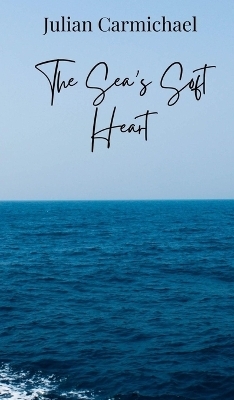 Julian Carmichael
The Sea's Soft
Heart